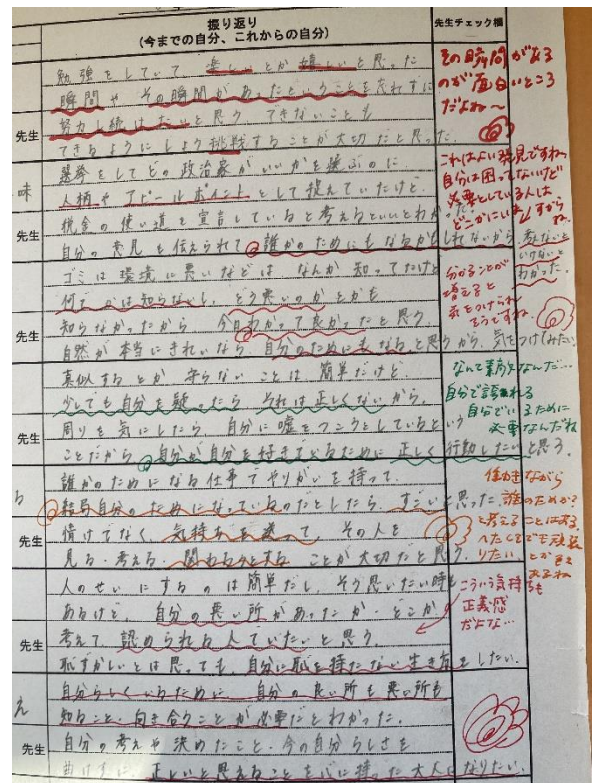 振り返り
(今までの自分、これからの自分)
先生チェック欄
勉強をしていて 楽しいとか嬉しいと思った
瞬間や その瞬間があったということを忘れずに
努力し続けたいと思う できないことも
できるようにしよう挑戦することが大切だと思った.
先生
その瞬間がある
のが面白いところ
だよね〜
味
選挙をしてどの政治家がいいかを選ぶのに
人柄や アピールポイントとして捉えていたけど.
税金の使い道を宣言していると考えるといいとわか
自分の意見を伝えられて 誰かのためにもなるかもしれないから. 考えないと
いけないと
わかった.
先生
これはよい発見ですね
自分は困ってないけど
必要としている人は、
どこかにいますから
ね.
ゴミは環境に悪いなどは なんか知ってたけど
何でかは知らないし、どう悪いのかとかも
知らなかったから 今日わかって良かったと思う.
自然が本当にきれいなら 自分のためにもなると思うから、気をつけてみたい.
先生
分かることが
増えると
気をつけられ
そうですね.
真似するとか 守らないことは 簡単だけど.
少しでも自分を疑ったら それは正しくないから.
周りを気にしたら 自分に嘘をつこうとしているという
ことだから 自分が自分を好きでいるために 正しく行動したいと思う.
先生
なんて素敵なんだ…
自分で誇れる
自分でいるために
必要なんだね
る
誰かのためになる仕事でやりがいを持って.
結局自分のためになっているのだとしたら すごいと思った.
情けでなく、気持ちを持って その人を
見る・考える・関わろうとする ことが大切だと思う.
先生
働きながら
誰のためか?
と考えることはある.
人のせいにするのは簡単だし、そう思いたい時も
あるけど、自分の悪い所があったか. どこか
考えて 認められる人でいたいと思う.
恥ずかしいとは思っても、自分に恥を持たない生き方をしたい.
先生
こういう気持ちも
正義感
だよな…
え
自分らしくいるために 自分の良い所も悪い所も
知ること・向き合うことが必要だとわかった.
自分の考えや決めたこと・今の自分らしさを
曲げずに 正しいと思えることを心に持った大人になりたい.
先生